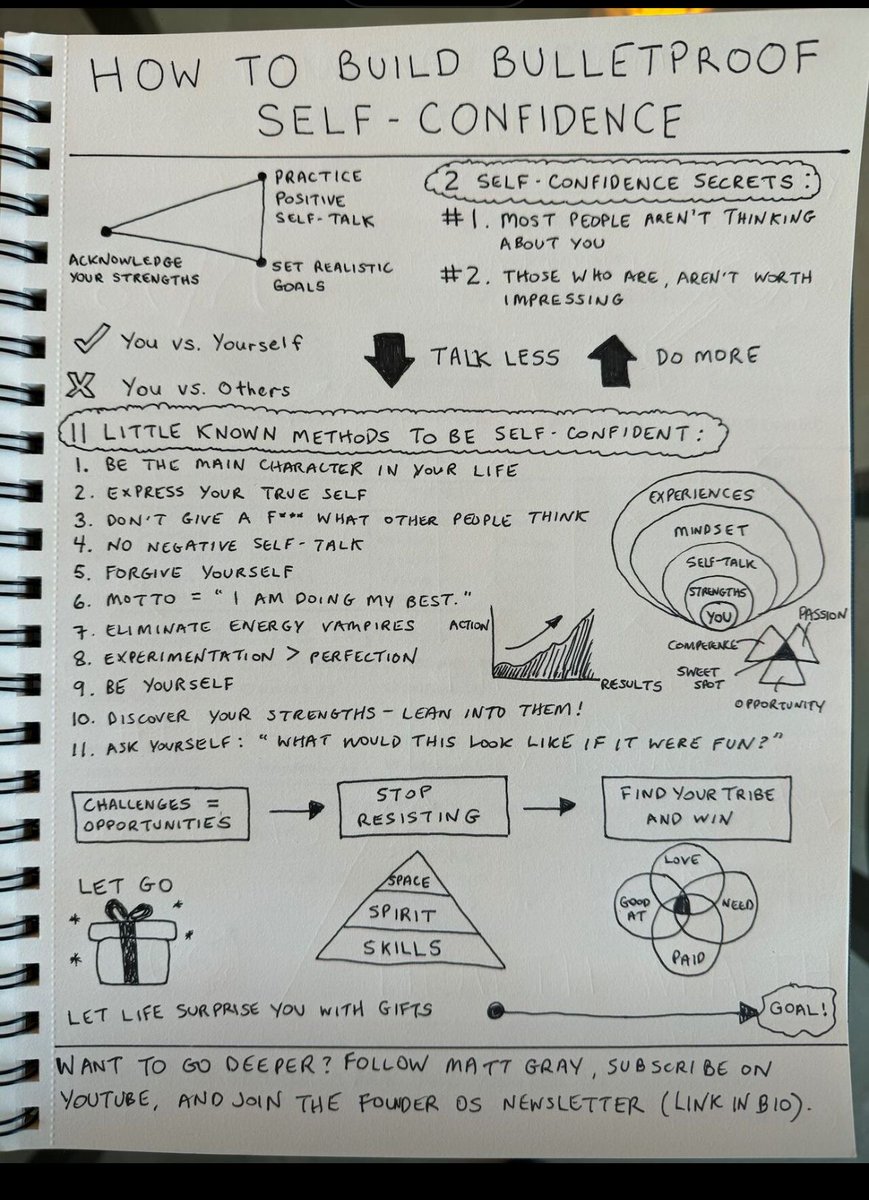 HOW TO BUILD BULLETPROOF
SELF-CONFIDENCE
PRACTICE
POSITIVE
SELF-TALK
ACKNOWLEDGE
YOUR STRENGTHS
SET REALISTIC
GOALS
2 SELF-CONFIDENCE SECRETS:
#1. MOST PEOPLE AREN'T THINKING
ABOUT YOU
#2. THOSE WHO ARE, AREN'T WORTH
IMPRESSING
You vs. Yourself
You vs. Others
TALK LESS
DO MORE
11 LITTLE KNOWN METHODS TO BE SELF-CONFIDENT:
1. BE THE MAIN CHARACTER IN YOUR LIFE
2. EXPRESS YOUR TRUE SELF
3. DON'T GIVE A F*** WHAT OTHER PEOPLE THINK
4. NO NEGATIVE SELF-TALK
5. FORGIVE YOURSELF
6. MOTTO = "I AM DOING MY BEST."
7. ELIMINATE ENERGY VAMPIRES
8. EXPERIMENTATION > PERFECTION
9. BE YOURSELF
10. DISCOVER YOUR STRENGTHS - LEAN INTO THEM!
11. ASK YOURSELF: "WHAT WOULD THIS LOOK LIKE IF IT WERE FUN?"
ACTION
RESULTS
EXPERIENCES
MINDSET
SELF-TALK
STRENGTHS
YOU
PASSION
COMPERENCE
SWEET
SPOT
OPPORTUNITY
CHALLENGES =
OPPORTUNITIES
STOP
RESISTING
FIND YOUR TRIBE
AND WIN
LET GO
SPACE
SPIRIT
SKILLS
LOVE
GOOD
AT
NEED
PAID
LET LIFE SURPRISE YOU WITH GIFTS
GOAL!
WANT TO GO DEEPER? FOLLOW MATT GRAY, SUBSCRIBE ON
YOUTUBE, AND JOIN THE FOUNDER OS NEWSLETTER (LINK IN BIO).